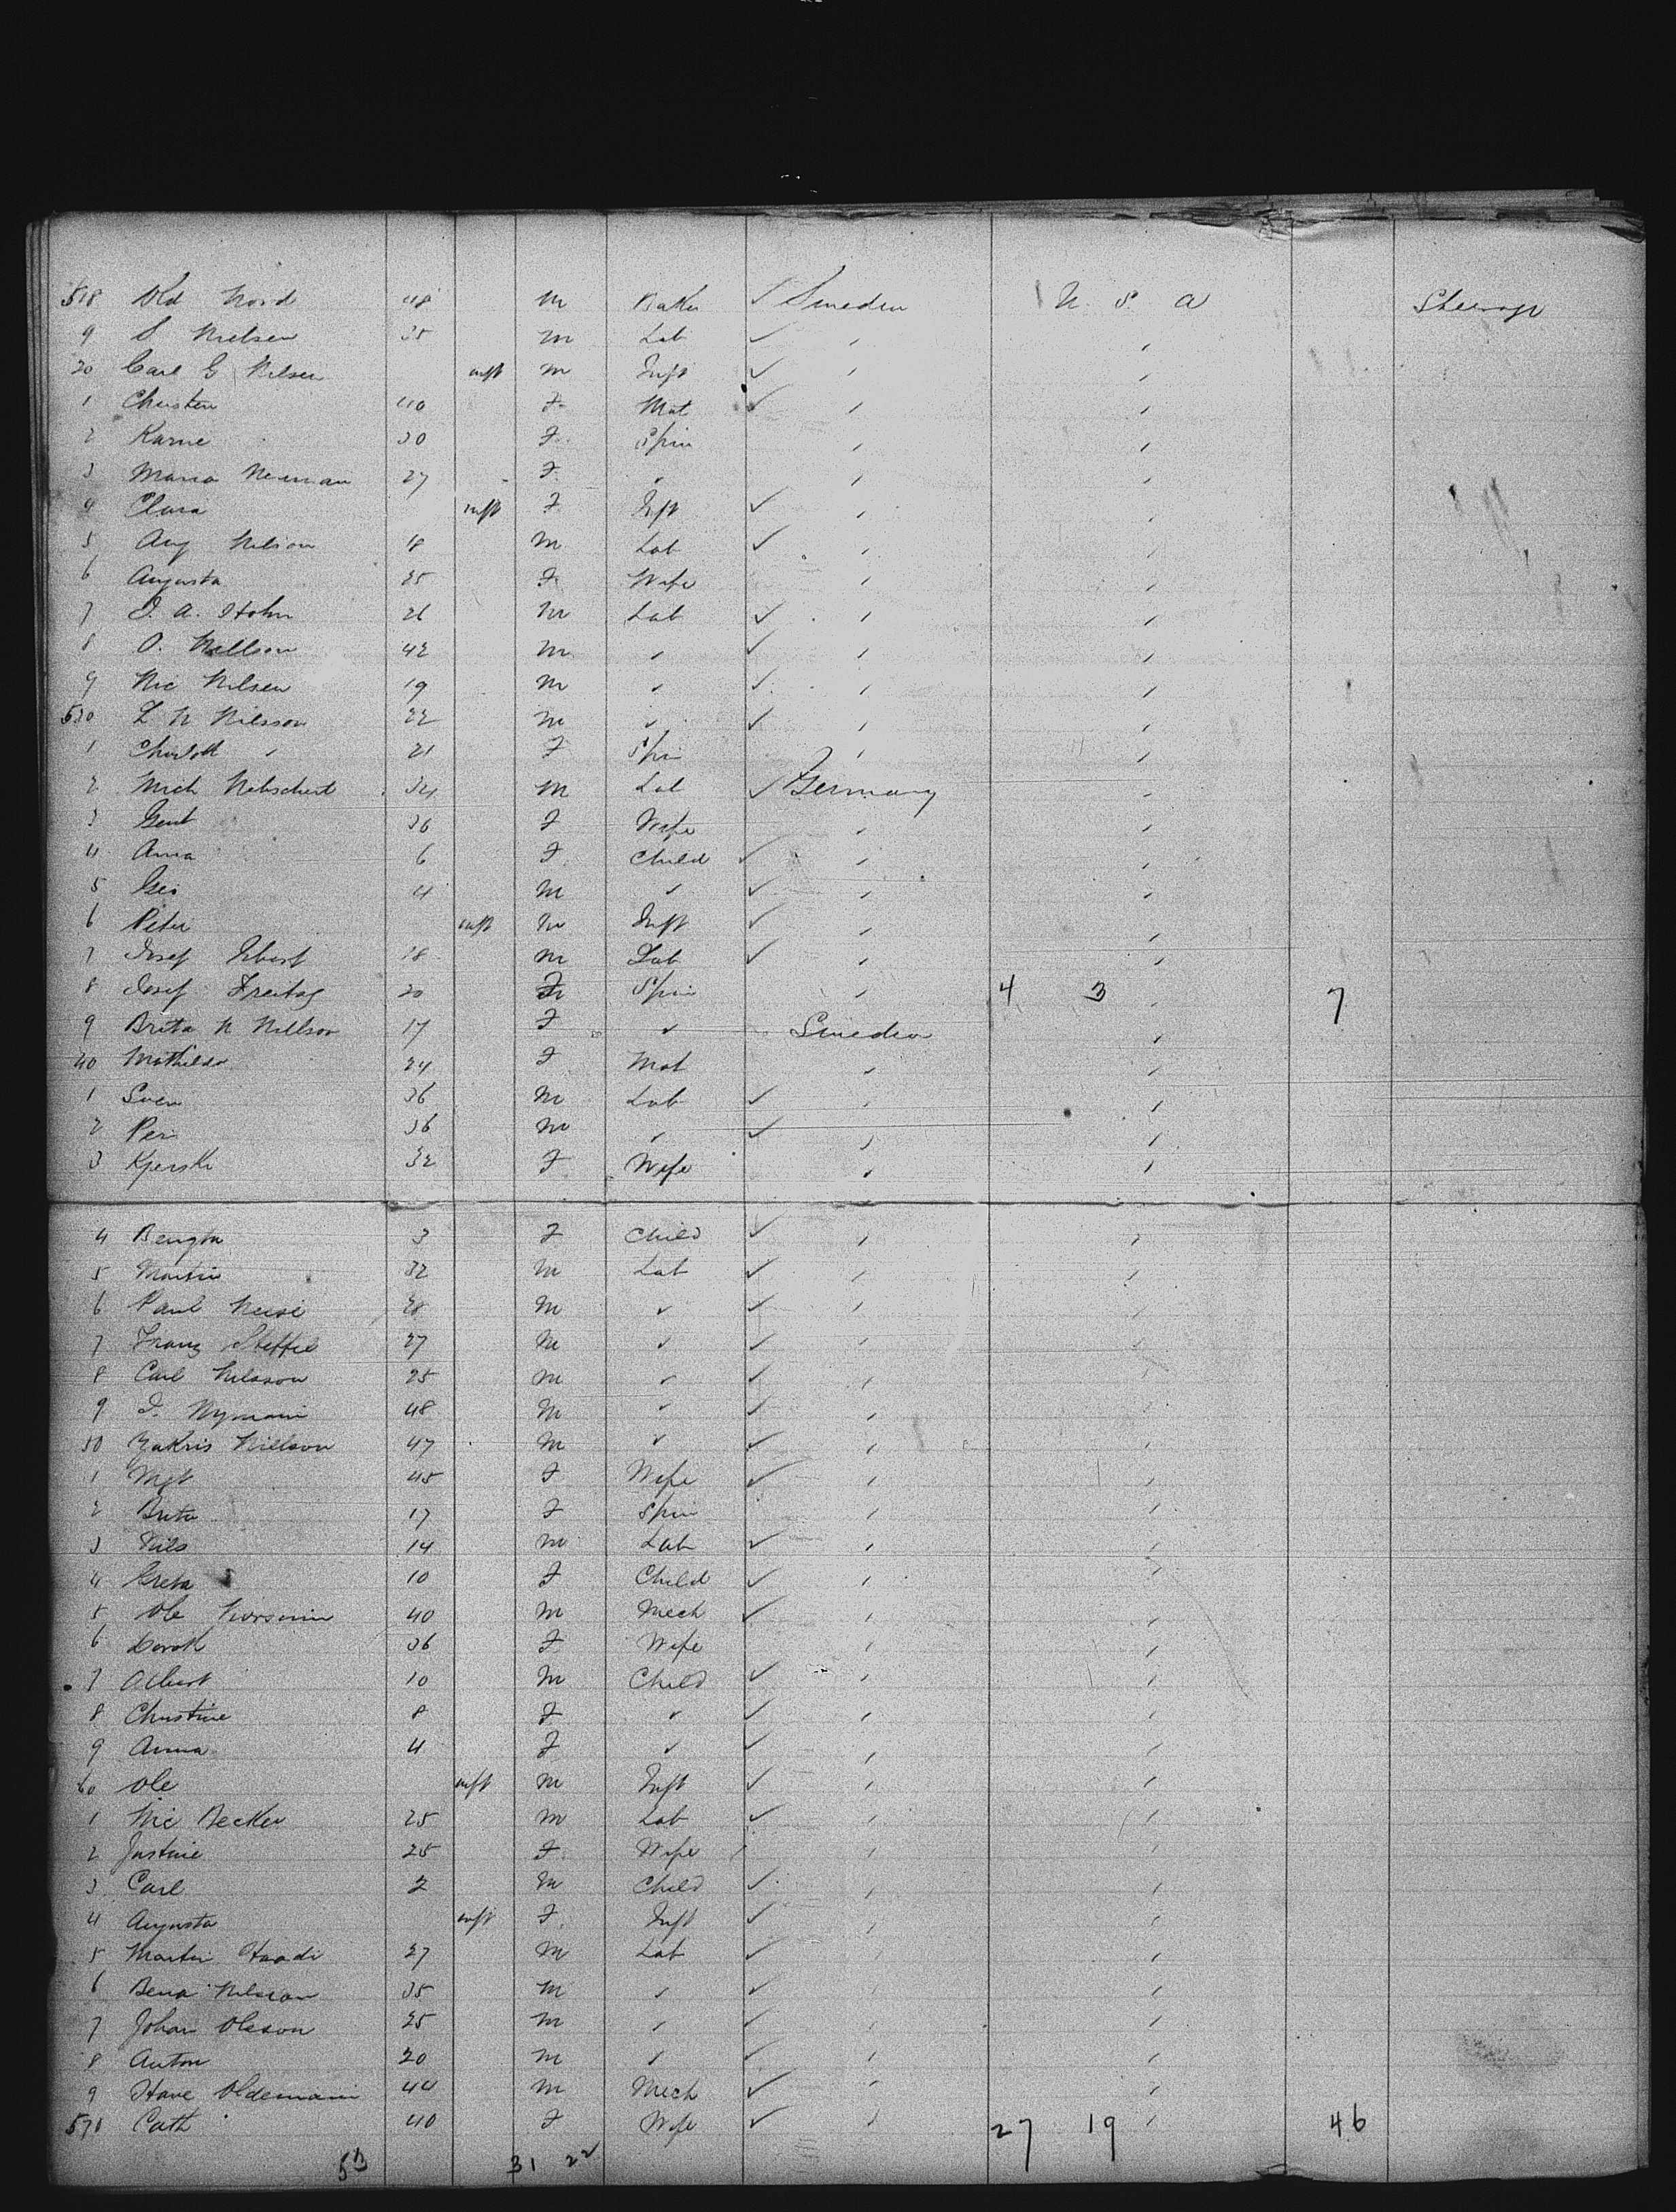 518 Old Nord 48 M Baker ✓ Sweden U S A Steerage
9 S Nielsen 35 M Lab ✓ " "
20 Carl G Nilsen inft M Inft ✓ " "
1 Christen 40 F Mat ✓ " "
2 Karne 30 F Spin " "
3 Maria Neuman 27 F " " "
4 Clara inft F Inft ✓ " "
5 Aug Nilson 18 M Lab ✓ " "
6 Augusta 25 F Wife " "
7 J. A. Hohn 26 M Lab ✓ " "
8 O. Nillson 42 M " ✓ " "
9 Nic Nilsen 19 M " ✓ " "
530 L N Nilsson 22 M " ✓ " "
1 Charlott " 21 F Spin " "
2 Mich 34 M Lab ✓ Germany "
3 Gent 36 F Wife " "
4 Anna 6 F Child ✓ " "
5 Geo 4 M " ✓ " "
6 Peter inft M Inft ✓ " "
7 Josef 18 M Lab ✓ " "
8 Josef Freitag 20 F Spin " 4 3 " 7
9 Brita N Nillson 17 F " Sweden "
40 Mathilda 24 F Mat " "
1 Sven 36 M Lab ✓ " "
2 Per 36 M " ✓ " "
3 Kjersti 32 F Wife " "
4 Bengta 3 F Child ✓ " "
5 Martin 32 M Lab ✓ " "
6 Paul 28 M " ✓ " "
7 Franz Steffel 27 M " ✓ " "
8 Carl Nilsson 25 M " ✓ " "
9 J. Nymann 48 M " ✓ " "
50 Zakris Nillson 47 M " ✓ " "
1 Mgt 45 F Wife ✓ " "
2 Brita 17 F Spin " "
3 Nils 14 M Lab ✓ " "
4 Greta 10 F Child ✓ " "
5 Ole 40 M Mech ✓ " "
6 Doroth 36 F Wife " "
7 Albert 10 M Child ✓ " "
8 Christine 8 F " ✓ " "
9 Anna 4 F " ✓ " "
60 Ole inft M Inft ✓ " "
1 Nic Becker 25 M Lab ✓ " "
2 Justine 25 F Wife " "
3 Carl 2 M Child ✓ " "
4 Augusta inft F Inft ✓ " "
5 Martin 27 M Lab ✓ " "
6 Bena Nilsson 35 M " ✓ " "
7 Johan Oleson 25 M " ✓ " "
8 Anton 20 M " ✓ " "
9 Have Oldemann 44 M Mech ✓ " "
570 Cath 40 F Wife ✓ " 27 19 " 46
53 31 22